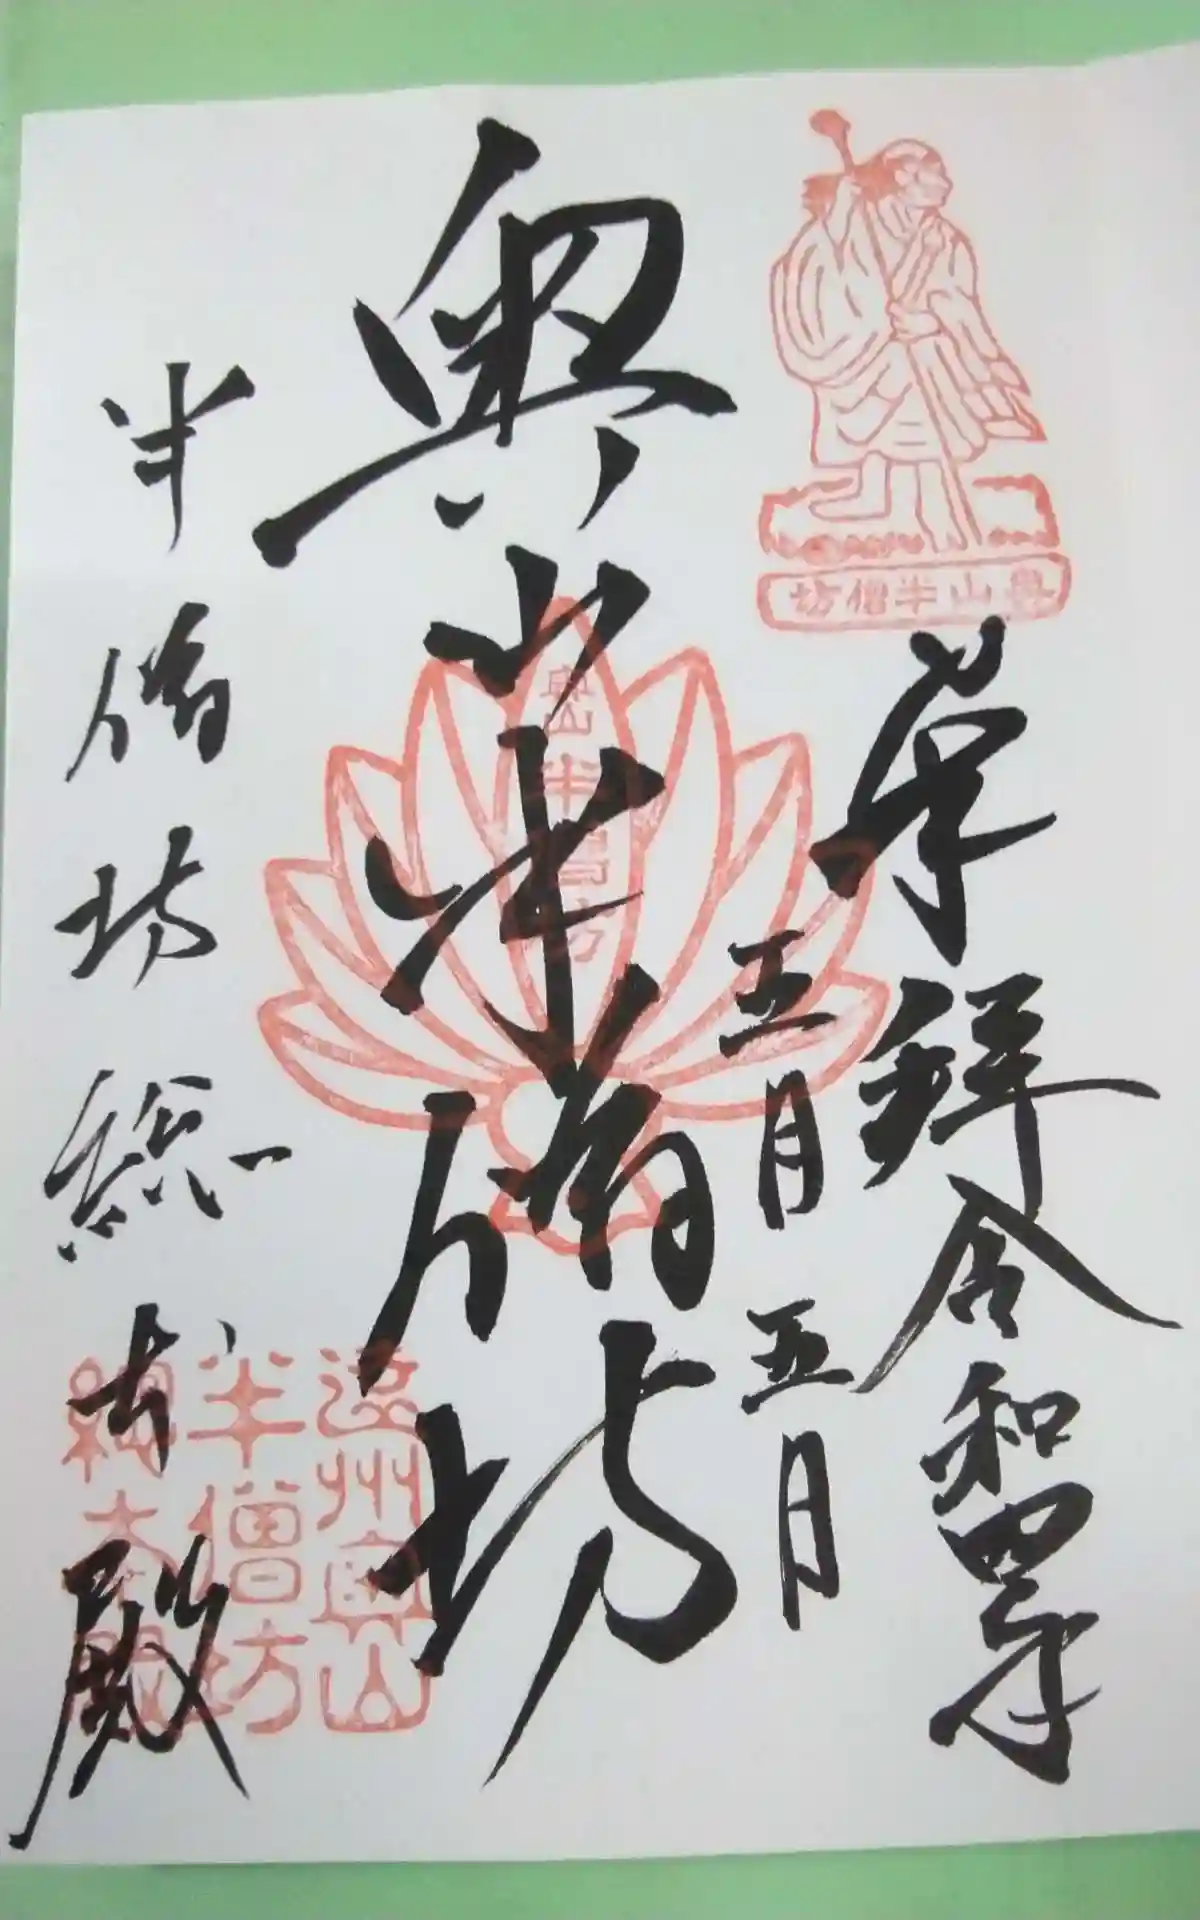 奉拝 令和四年
五月五日
奥山半僧坊
半僧坊総本殿
奥山半僧坊
奥山半僧坊
遠州奥山
半僧坊
総本殿